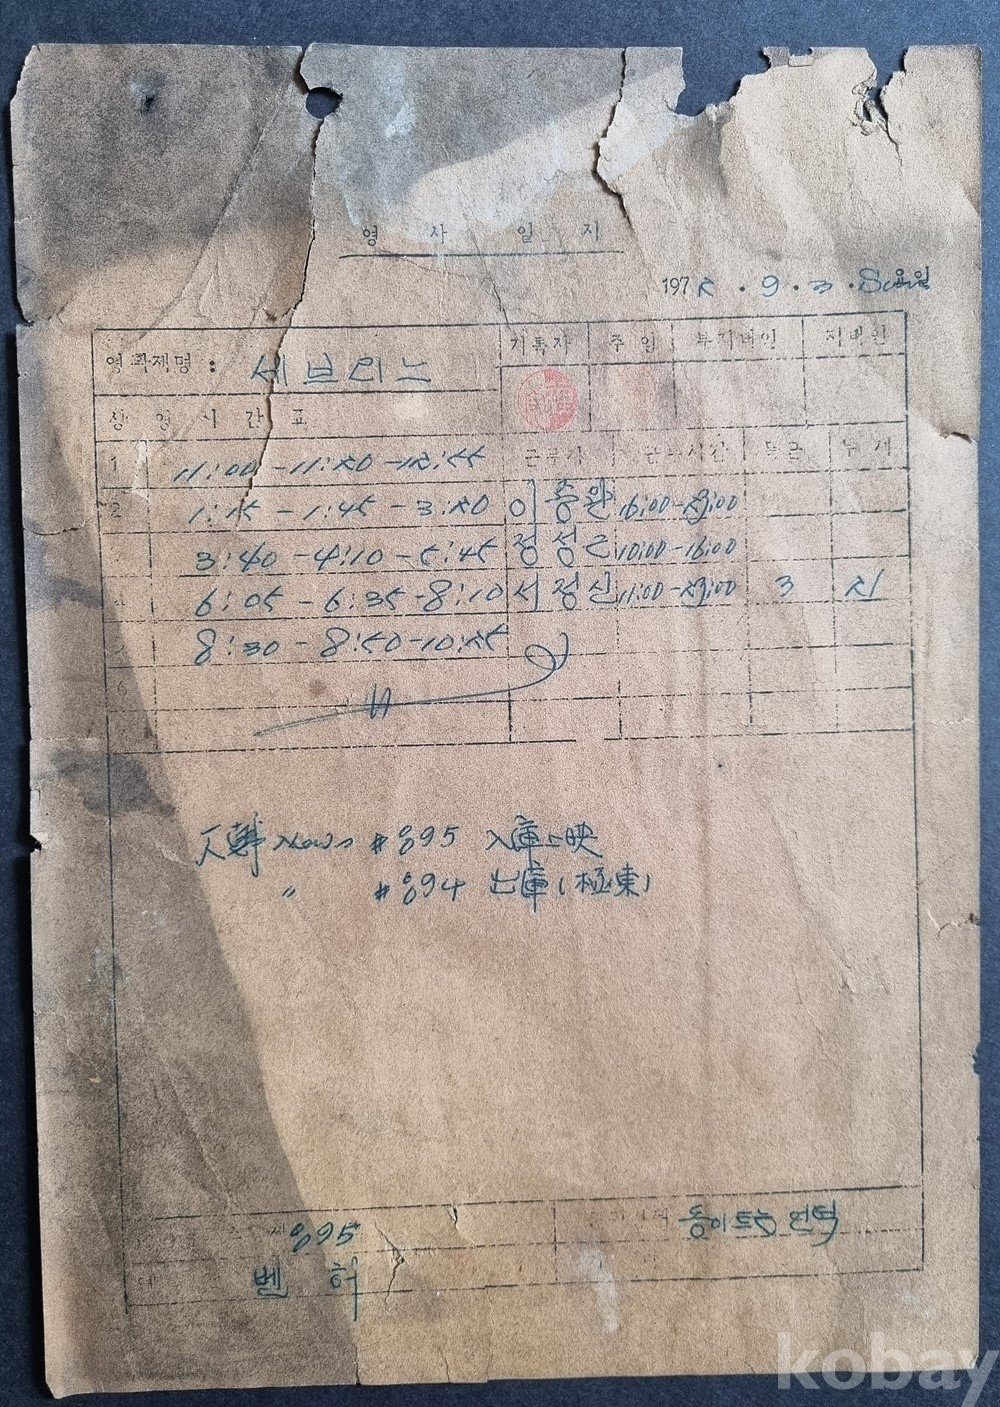 영 사 일 지
197２. 9. 3. Sun요일
영화제명 : 세브리느
기록자 주임 부지배인 지배인
상 영 시 간 표
근무자 근무시간
1 11:00 - 11:20 - 12:55
2 1:15 - 1:45 - 3:20 이종완 16:00 - 23:00
3:40 - 4:10 - 5:45 정성근 10:00 - 16:00
4 6:05 - 6:35 - 8:10 서정신 11:00 - 23:00 3 지
8:30 - 8:50 - 10:25
6
News #895 入庫上映
〃 #894 出庫(極東)
895 동이트는 언덕
벤 허
kobay